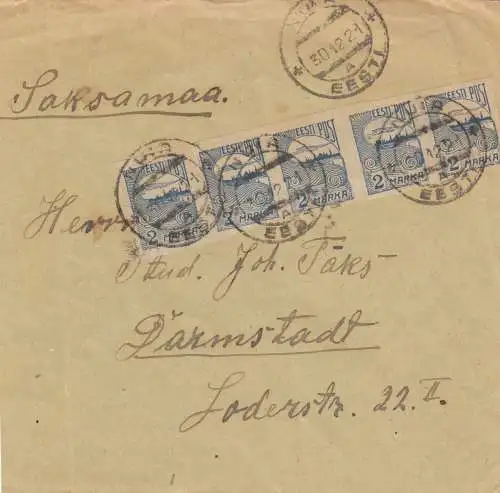 30.12.21
A
EESTI
Saksamaa.
EESTI POST EESTI POST EESTI POST EESTI POST EESTI POST
2 MARKA 2 MARKA 2 MARKA 2 MARKA 2 MARKA
Herrn
Stud. Joh. Täks
Darmstadt
Soderstr. 22. II.